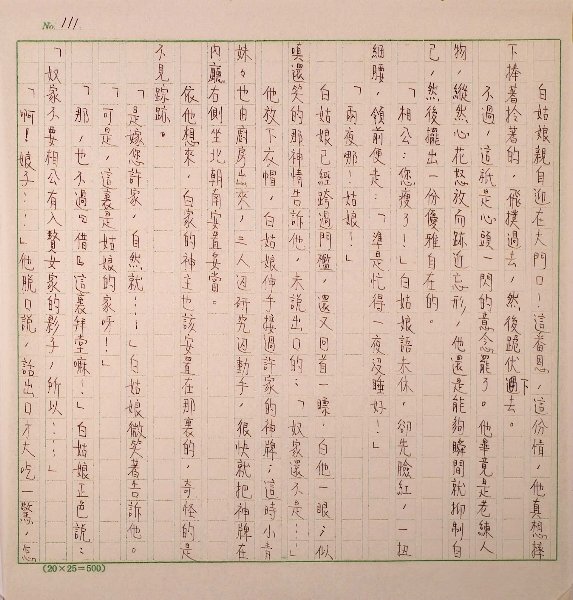 No. 111
白姑娘親自迎在大門口！這番恩，這份情，他真想摔
下捧著拎著的，飛撲過去，然後跪伏下過去。
不過，這祇是心頭一閃的意念罷了。他畢竟是老練人
物，縱然心花怒放而跡近忘形，他還是能夠瞬間就抑制自
己，然後擺出一份優雅自在的。
「相公：您瘦了！」白姑娘語未休，卻先臉紅，一扭
細腰，領前便走。「準是忙得一夜沒睡好！」
「兩夜哪！姑娘！」
白姑娘已經跨過門檻，還又回首一瞟，白他一眼；似
嗔還笑的那神情告訴他，未說出口的：「奴家還不是…」
他放下衣帽，白姑娘伸手接過許家的神牌；這時小青
妹々也由廚房出來，三人邊研究邊動手，很快就把神牌在
內廳右側坐北朝南安置妥當。
依他想來，白家的神主也該安置在那裏的，奇怪的是
不見踪跡。
「是嫁您許家，自然就……」白姑娘微笑著告訴他。
「可是，這裏是姑娘的家呀！」
「那，也不過是借這裏拜堂嘛！」白姑娘正色說：
「奴家不要相公有入贅女家的影子，所以……」
「啊！娘子……」他脫口說，話出口才大吃一驚，怎
(20×25=500)